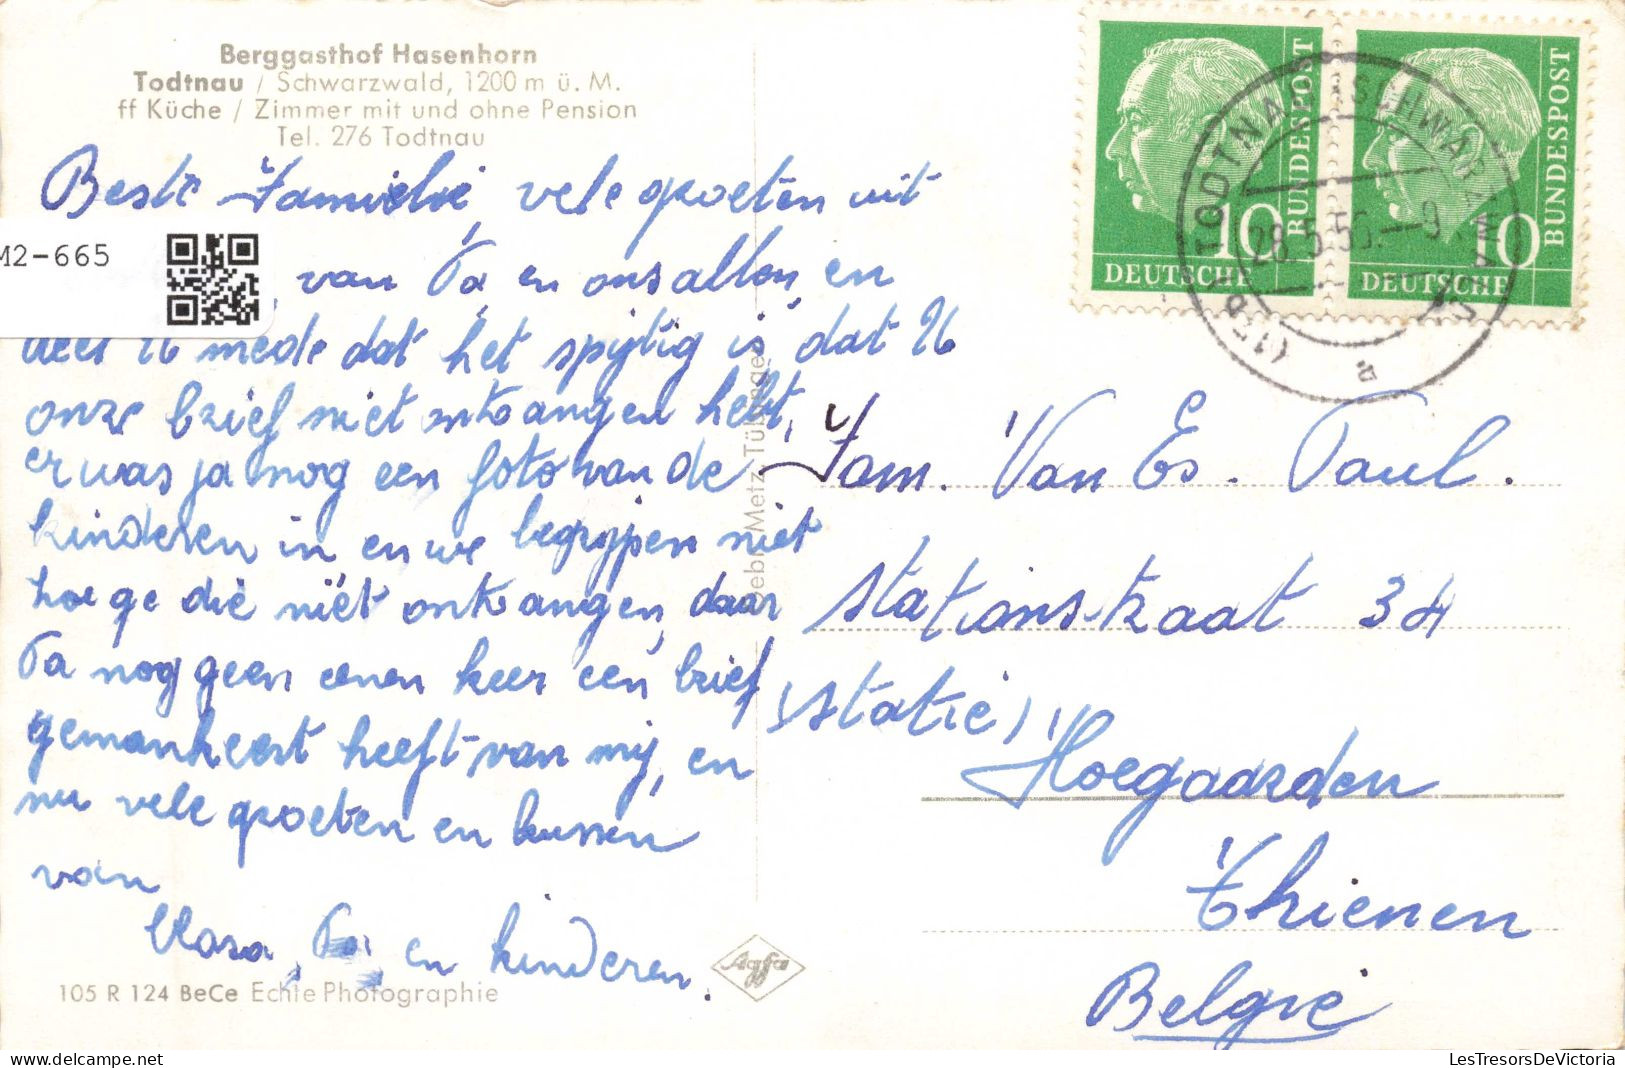 Berggasthof Hasenhorn
Todtnau / Schwarzwald, 1200 m ü. M.
ff Küche / Zimmer mit und ohne Pension
Tel. 276 Todtnau
Beste Familie, vele groeten uit
, van Pa, en ons allen, en
deel U mede dat het spijtig is, dat U
onze brief niet ontvangen hebt,
er was ja nog een foto van de
kinderen in en we begrijpen niet
hoe ge die niet ontvangen, daar
Pa nog geen eenen keer een brief
gemankeert heeft van mij, en
nu vele groeten en kussen
van
Clara, Pa, en kinderen.
105 R 124 BeCe Echte Photographie
Agfa
Gebr. Metz, Tübingen
M2-665
DEUTSCHE
BUNDESPOST
10
DEUTSCHE
BUNDESPOST
10
TODTNAU (SCHWARZWALD)
28.5.56.-9
a
Fam. Van Es. Paul.
Stationstraat 34
(Statie)
Hoegaarden
Thienen
België
LesTresorsDeVictoria